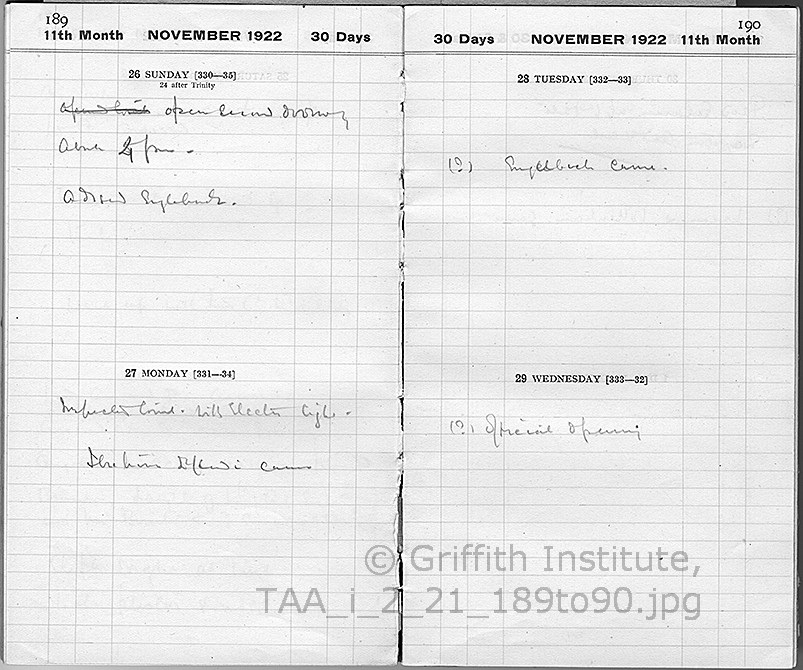 189
11th Month NOVEMBER 1922 30 Days
26 SUNDAY [330—35]
24 after Trinity
open second doorway
About 2 pm -
Advised Engelbach.
27 MONDAY [331—34]
Inspected tomb. with Electric light -
Ibrahim Effendi came
190
30 Days NOVEMBER 1922 11th Month
28 TUESDAY [332—33]
(?) Engelbach came.
29 WEDNESDAY [333—32]
(?) Official Opening
© Griffith Institute,
TAA_i_2_21_189to90.jpg